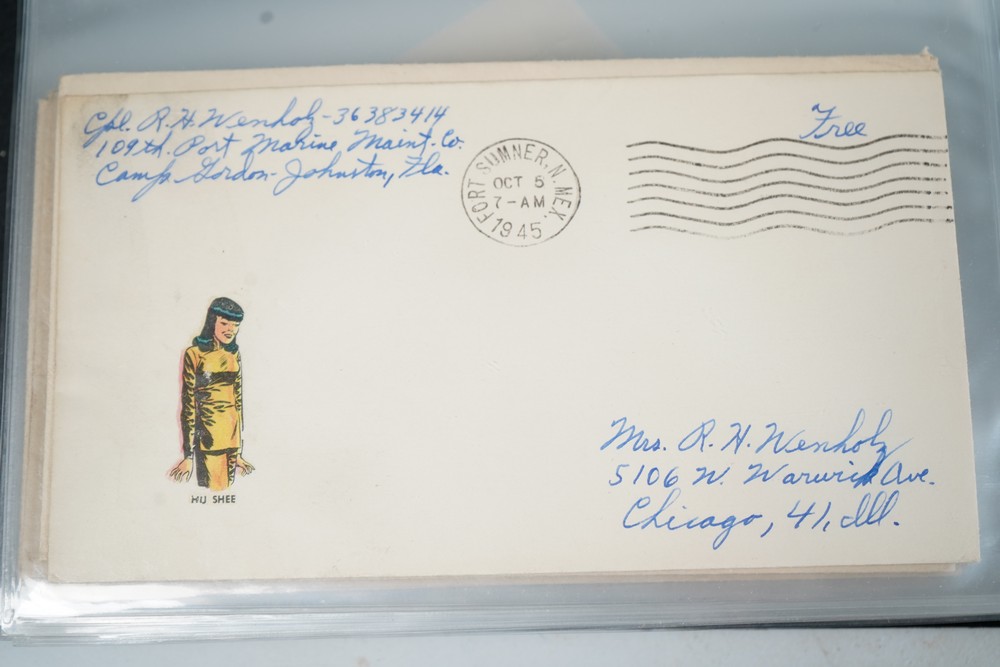 Cpl. R.H. Wenholz-36383414
109th. Port Marine Maint. Co.
Camp Gordon-Johnston, Fla.
Free
FORT SUMNER, N. MEX.
OCT 5
7-AM
1945
HU SHEE
Mrs. R. H. Wenholz
5106 W. Warwick Ave.
Chicago, 41, Ill.